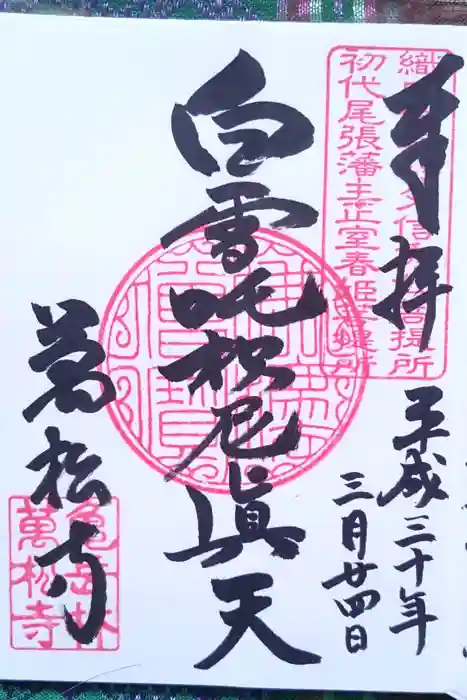 奉拝
平成三十年
三月廿四日
初代尾張藩主正室春姫菩提所
白雪吒枳尼眞天
萬松寺
亀岳林
萬松寺